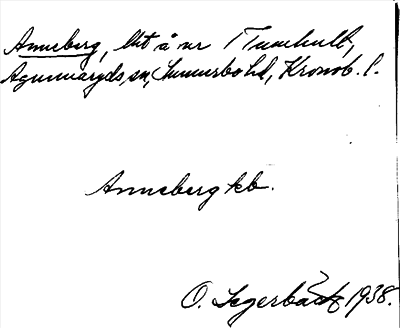 Anneberg, lht å nr 1 Tunhult,
Agunnaryds sn, Sunnerbo hd, Kronob. l.
Anneberg kb.
O. Segerbäck 1938.